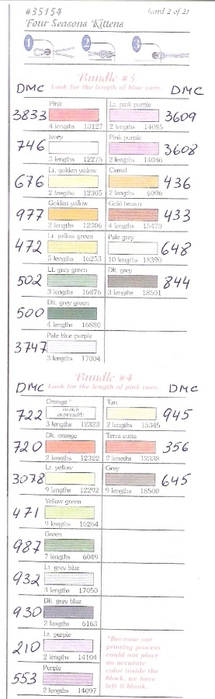 #35154 (card 2 of 2)
Four Seasons Kittens
1 2 3
Bundle #3
DMC Look for the length of blue yarn. DMC
3833 Pink 4 lengths 13127 Lt. pink purple 2 lengths 14085 3609
746 Ivory lengths 12275 Pink purple 2 lengths 14086 3608
676 Lt. golden yellow 2 lengths 12305 Camel 2 lengths 436
977 Golden yellow 2 lengths 12306 Gold brown 4 lengths 15470 433
472 Lt. yellow green 5 lengths 16253 Pale grey 10 lengths 18390 648
502 Lt. grey green 3 lengths 16876 Dk. grey 3 lengths 18501 844
500 Dk. grey green 4 lengths 16880
3747 Pale blue purple 3 lengths 17004
Bundle #4
DMC Look for the length of pink yarn. DMC
722 Orange* 3 lengths 12323 Tan 2 lengths 15345 945
720 Dk. orange 2 lengths 12322 Terra cotta 2 lengths 12338 356
3078 Lt. yellow 9 lengths 12292 Grey 9 lengths 18500 645
471 Yellow green 9 lengths 16264
987 Green 7 lengths 6049
932 Lt. grey blue 3 lengths 17050
930 Dk. grey blue 2 lengths 6163
210 Lt. purple 2 lengths 14104
553 Purple lengths 14097
*Because our
printing process
could not place
an accurate
color inside the
block, we have
left it blank.